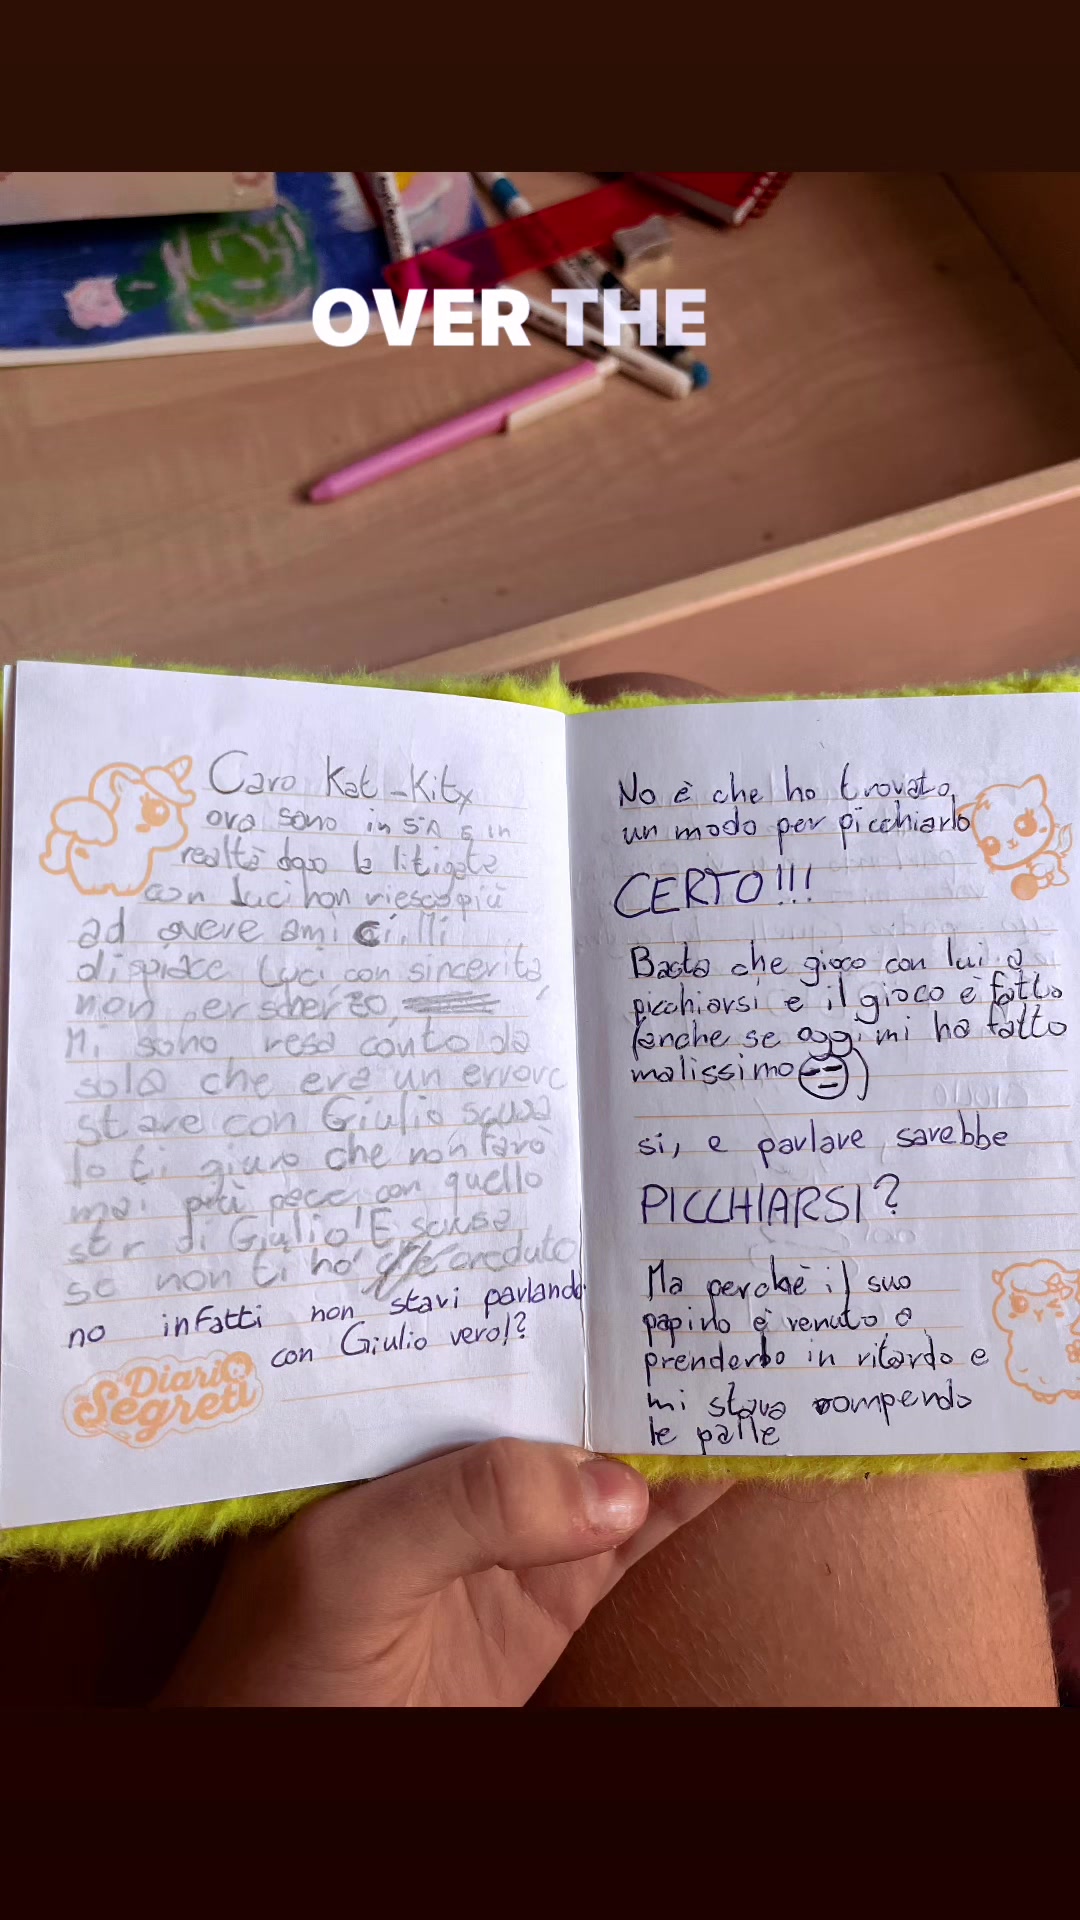 OVER THE
Caro Kat-Kitx
ora sono in 5°A e in
realtà dopo la litigata
con Luci non riesco più
ad avere amici, Mi
dispiace Luci con sincerità
non per scherzo,
Mi sono resa conto da
sola che era un errore
stare con Giulio scusa
Io ti giuro che non farò
mai più pace con quello
str di Giulio! E scusa
se non ti ho creduto
no infatti non stavi parlando
con Giulio vero!?
Diari
Segreti
No è che ho trovato
un modo per picchiarlo
CERTO!!!
Basta che gioco con lui a
picchiarsi e il gioco è fatto
(anche se oggi mi ha fatto
malissimo )
si, e parlare sarebbe
PICCHIARSI?
Ma perchè il suo
papino è venuto a
prenderlo in ritardo e
mi stava rompendo
le palle